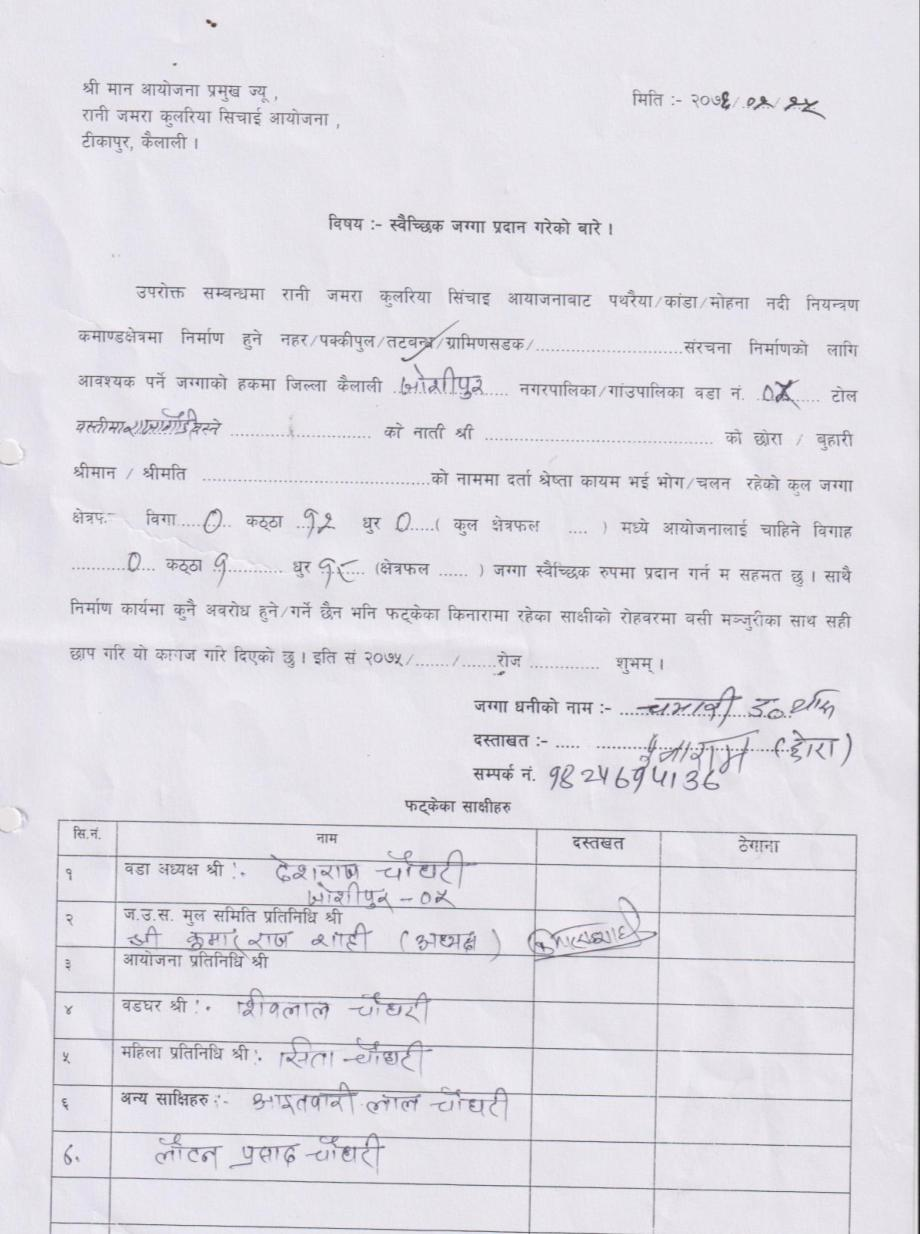 श्री मान आयोजना प्रमुख ज्यू ,
मिति :- २०७६/०२/२५
रानी जमरा कुलरिया सिचाई आयोजना ,
टीकापुर, कैलाली ।
विषय :- स्वैच्छिक जग्गा प्रदान गरेको बारे ।
उपरोक्त सम्बन्धमा रानी जमरा कुलरिया सिंचाइ आयाजनाबाट पथरैया/कांडा/मोहना नदी नियन्त्रण
कमाण्डक्षेत्रमा निर्माण हुने नहर/पक्कीपुल/तटबन्ध/ग्रामिणसडक/..............................संरचना निर्माणको लागि
आवश्यक पर्ने जग्गाको हकमा जिल्ला कैलाली जोशीपुर नगरपालिका/गांउपालिका वडा नं. ०५ टोल
वस्तीमा बस्ने .............................. को नाती श्री ................................................ को छोरा / बुहारी
श्रीमान / श्रीमति ................................................को नाममा दर्ता श्रेष्ता कायम भई भोग/चलन रहेको कुल जग्गा
क्षेत्रफः- विगा.....0.. कठ्ठा ..१२ धुर 0.....( कुल क्षेत्रफल .... ) मध्ये आयोजनालाई चाहिने विगाह
...........0... कठ्ठा १........... धुर १८.... (क्षेत्रफल ...... ) जग्गा स्वैच्छिक रुपमा प्रदान गर्न म सहमत छु । साथै
निर्माण कार्यमा कुनै अवरोध हुने/गर्ने छैन भनि फट्केका किनारामा रहेका साक्षीको रोहवरमा बसी मञ्जुरीका साथ सही
छाप गरि यो कागज गरि दिएको छु । इति सं २०७५/......./.......रोज ............ शुभम् ।
जग्गा धनीको नाम :- ड० थारु
दस्ताखत :- ..... (छोरा)
सम्पर्क नं. 9824694136
फट्केका साक्षीहरु
सि.नं. नाम दस्तखत ठेगाना
१ वडा अध्यक्ष श्री :. देशराज चौधरी
जोशीपुर - ०५
२ ज.उ.स. मुल समिति प्रतिनिधि श्री
श्री कुमार राज शाही (अध्यक्ष)
३ आयोजना प्रतिनिधि श्री
४ वडघर श्री :. शिवलाल चौधरी
५ महिला प्रतिनिधि श्री :. सिता चौधरी
६ अन्य साक्षिहरु :- आइतवारी लाल चौधरी
७. लौटन प्रसाद चौधरी